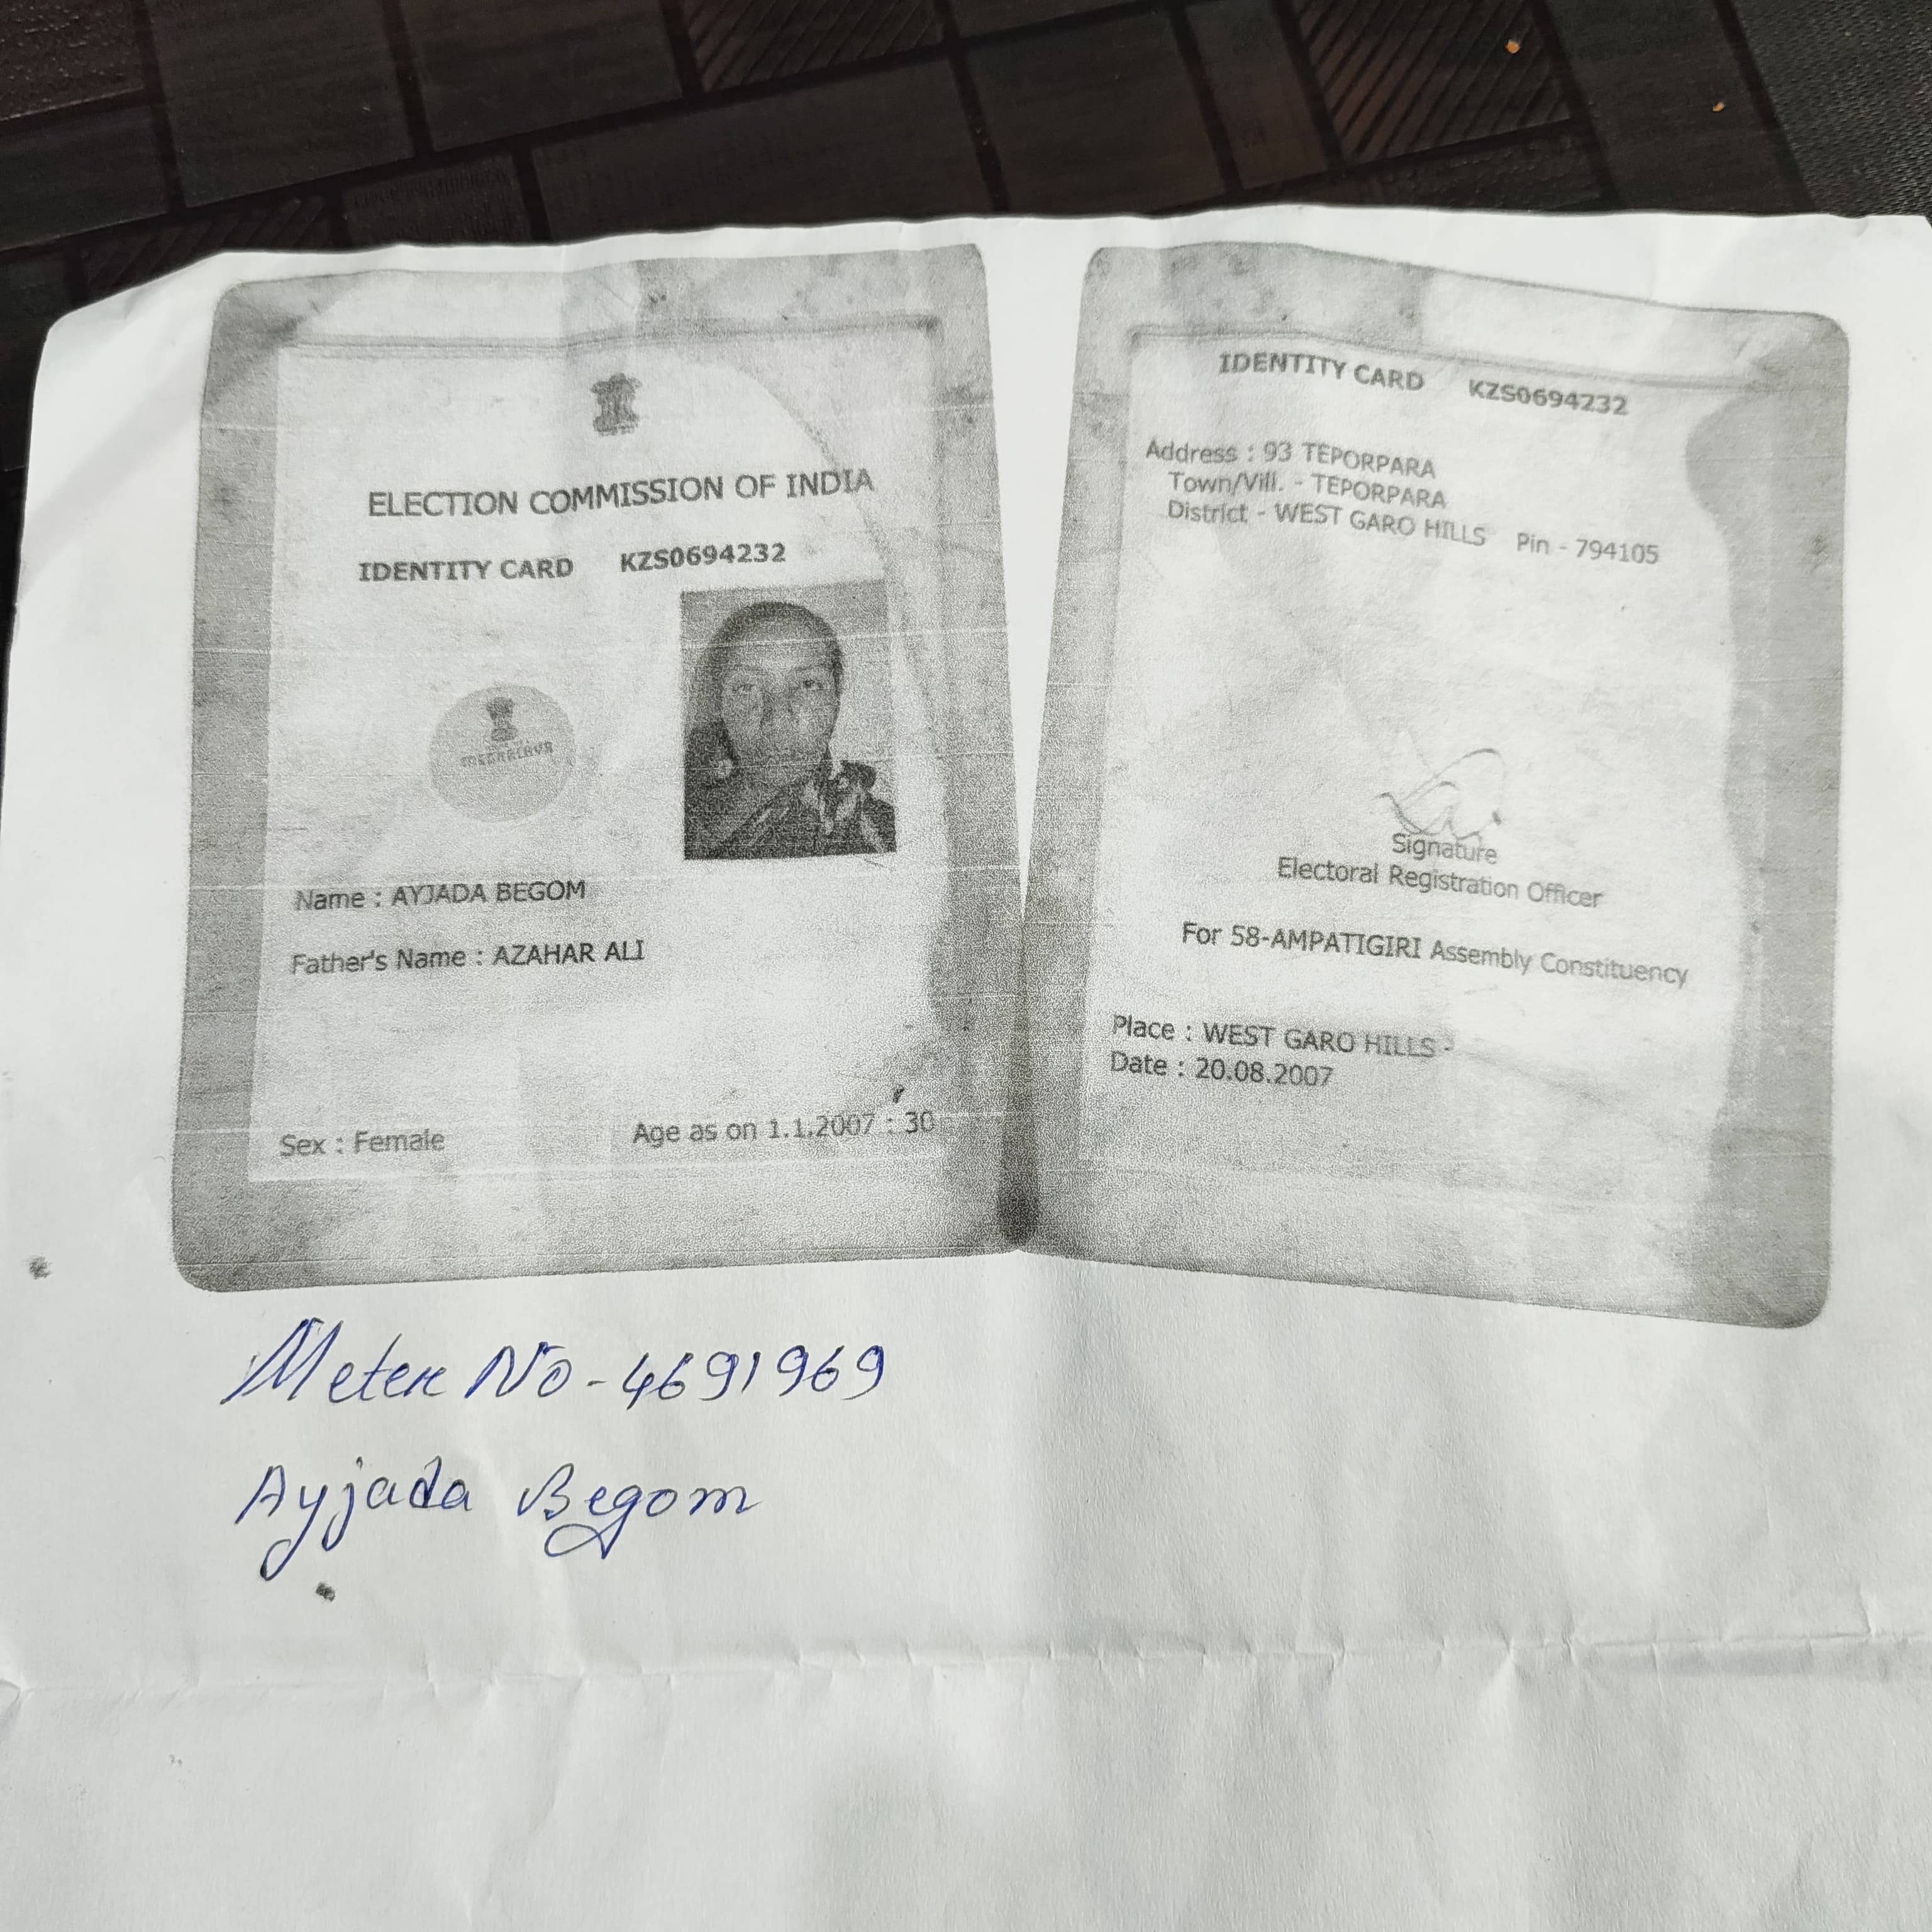 ELECTION COMMISSION OF INDIA
IDENTITY CARD KZS0694232
MEGHALAYA
Name : AYJADA BEGOM
Father's Name : AZAHAR ALI
Sex : Female Age as on 1.1.2007 : 30
IDENTITY CARD KZS0694232
Address : 93 TEPORPARA
Town/Vill. - TEPORPARA
District - WEST GARO HILLS Pin - 794105
Signature
Electoral Registration Officer
For 58-AMPATIGIRI Assembly Constituency
Place : WEST GARO HILLS -
Date : 20.08.2007
Meter No - 4691969
Ayjada Begom